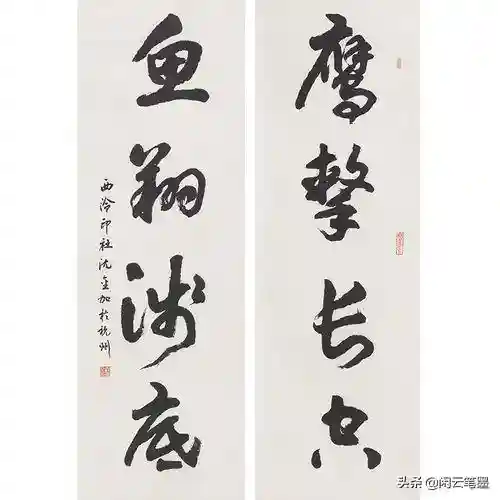 鹰擊长空
鱼翔浅底
西泠印社沈加於杭州
头条 @闲云笔墨